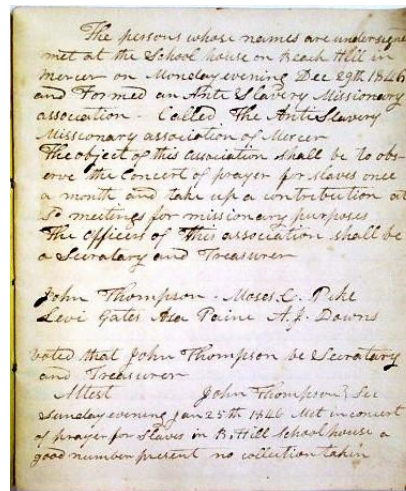 The persons whose names are undersigne
met at the School house on Beach Hill in
mercer on Monday evening Dec 29th 1846
and Formed an Anti Slavery Missionary
association - Called The Anti Slavery
Missionary association of Mercer
The object of this association shall be to obs-
erve the Concert of prayer for slaves once
a month and take up a contribution at
meetings for missionary purposes
The officers of This association shall be
a Secratary and Treasurer
John Thompson - Moses C. Pike
Levi Gates Asa Paine A.J. Downs
voted that John Thompson be Secratary
and Treasurer
Attest John Thompson Sec
Sunday evening Jan 25th 1846 Met in concert
of prayer for Slaves in B. Hill School house a
good number present no collection taken